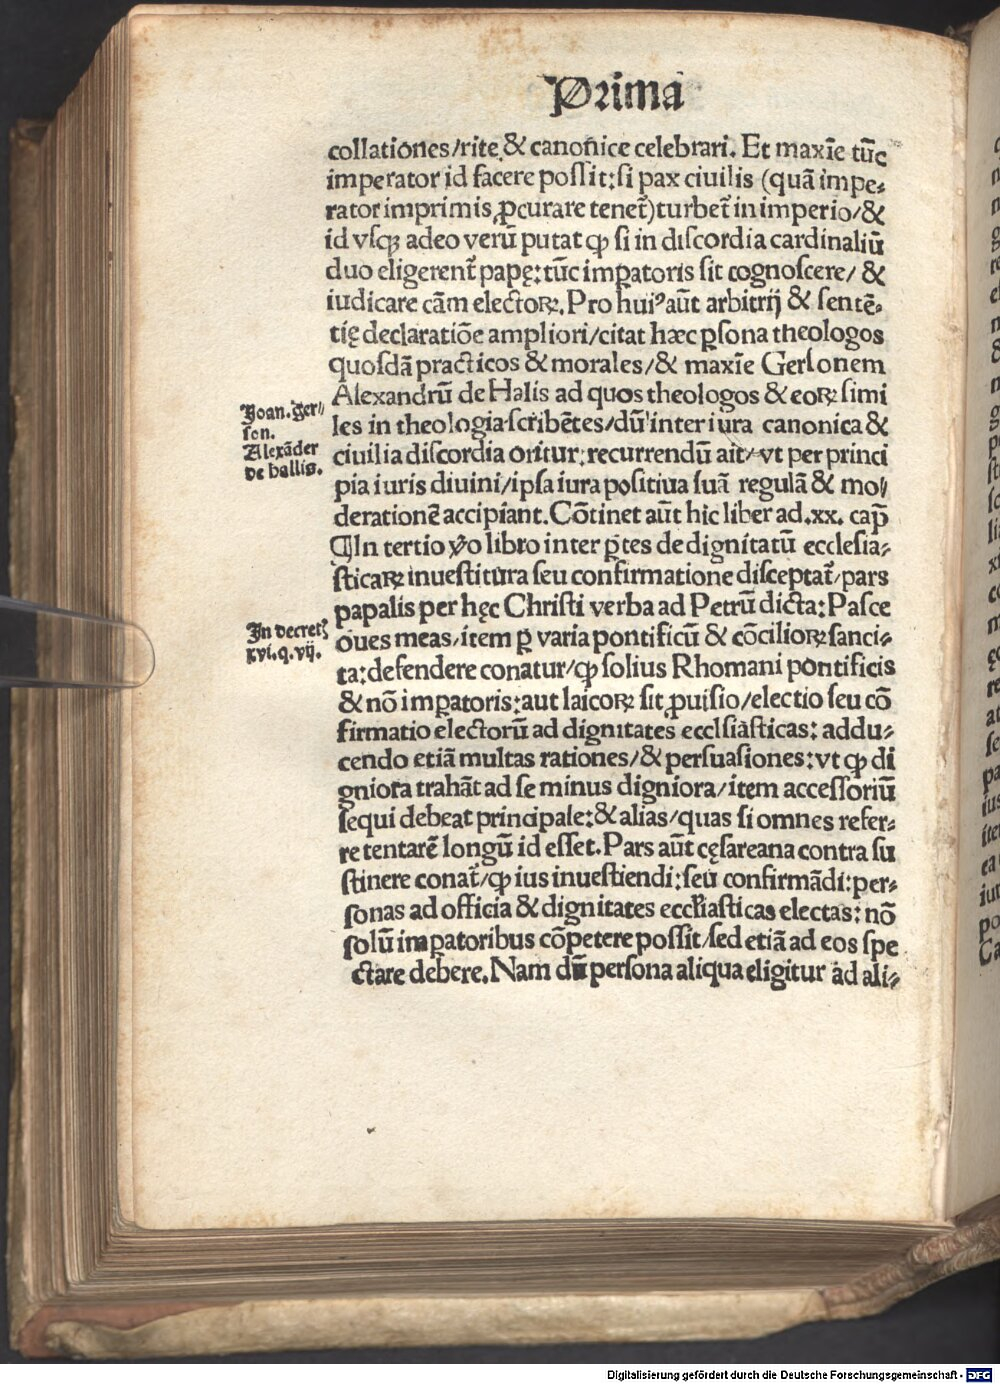 Prima
collationes/rite & canonice celebrari. Et maxīe tūc
imperator id facere possit: si pax ciuilis (quā impe⸗
rator imprimis ꝓcurare tenet̄) turbet̄ in imperio/&
id vsqꝫ adeo verū putat ꝙ si in discordia cardinaliū
duo eligerent̄ papę: tūc imꝑatoris sit cognoscere/ &
iudicare cām electoꝝ. Pro huiꝰ aūt arbitrij & sentē⸗
tię declaratiōe ampliori/citat hæc ꝑsona theologos
quosdā practicos & morales/& maxīe Gersonem
Alexandrū de Halis ad quos theologos & eoꝝ simi
les in theologia scribētes/dū inter iura canonica &
ciuilia discordia oritur: recurrendū ait/vt per princi
pia iuris diuini/ipsa iura positiua suā regulā & mo⸗
derationē accipiant. Cōtinet aūt hic liber ad .xx. cap̄
¶In tertio v̄o libro inter ꝑtes de dignitatū ecclesia⸗
sticaꝝ inuestitura seu confirmatione disceptat̄/pars
papalis per hęc Christi verba ad Petrū dicta: Pasce
oues meas/item ꝑ varia pontificū & cōcilioꝝ sanci⸗
ta: defendere conatur/ꝙ solius Rhomani pontificis
& nō imꝑatoris: aut laicoꝝ sit ꝓuisio/electio seu cō
firmatio electorū ad dignitates ecclsiasticas: addu⸗
cendo etiā multas rationes/& persuasiones: vt ꝙ di
gniora trahāt ad se minus digniora/item accessoriū
sequi debeat principale: & alias/quas si omnes refer⸗
re tentarē longū id esset. Pars aūt cęsareana contra su
stinere conat̄/ꝙ ius inuestiendi: seu confirmādi: per⸗
sonas ad officia & dignitates eccl̄iasticas electas: nō
solū imꝑatoribus cōpetere possit/sed etiā ad eos spe
ctare debere. Nam dū persona aliqua eligitur ad ali⸗
Joan. Ger⸗
son.
Alexāder
de hallis.
In decret̄
xvi. q. vij.
Digitalisierung gefördert durch die Deutsche Forschungsgemeinschaft - DFG